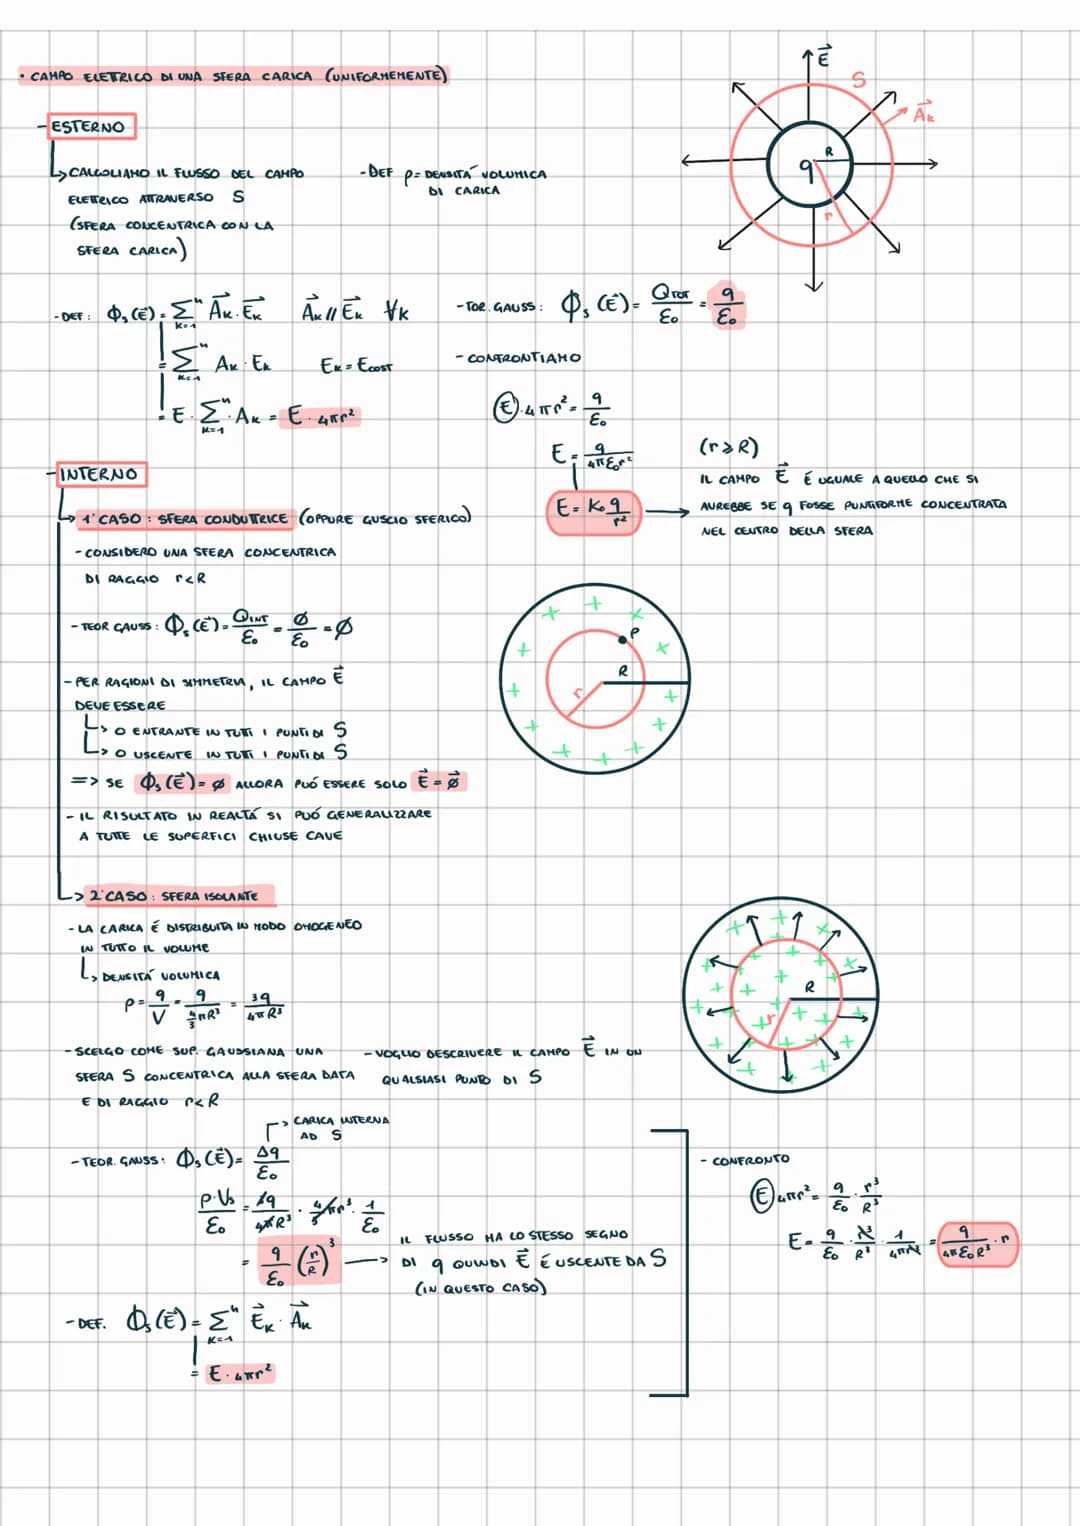 • CAMPO ELETRICO DI UNA SFERA CARICA (UNIFORMEMENTE)
- ESTERNO
↳ CALCOLIAMO IL FLUSSO DEL CAMPO
ELETTRICO ATTRAVERSO S
(SFERA CONCENTRICA CON LA
SFERA CARICA)
- DEF ρ = DENSITÁ VOLUMICA
DI CARICA
E⃗
S
A⃗ₖ
R
q
r
- DEF: Φₛ(E⃗) = Σⁿₖ₌₁ A⃗ₖ · E⃗ₖ A⃗ₖ // E⃗ₖ ∀k
= Σⁿₖ₌₁ Aₖ · Eₖ Eₖ = Ecost
= E · Σⁿₖ₌₁ · Aₖ = E · 4πr²
- TOR. GAUSS: Φₛ(E⃗) = Qtot/ε₀ = q/ε₀
- CONFRONTIAMO
E · 4πr² = q/ε₀
E = q/4πε₀r²
E = K₀ q/r² →
(r ⩾ R)
IL CAMPO E⃗ É UGUALE A QUELLO CHE SI
AUREBBE SE q FOSSE PUNTIFORME CONCENTRATA
NEL CENTRO DELLA SFERA
- INTERNO
↳ 1° CASO: SFERA CONDUTTRICE (OPPURE GUSCIO SFERICO)
- CONSIDERO UNA SFERA CONCENTRICA
DI RAGGIO r<R
- TEOR GAUSS: Φₛ(E⃗) = Qint/ε₀ = Ø/ε₀ = Ø
- PER RAGIONI DI SIMMETRIA, IL CAMPO E⃗
DEVE ESSERE
↳ O ENTRANTE IN TUTTI I PUNTI DI S
↳ O USCENTE IN TUTTI I PUNTI DI S
=> SE Φₛ(E⃗) = Ø ALLORA PUÓ ESSERE SOLO E⃗ = Ø⃗
- IL RISULTATO IN REALTÁ SI PUÓ GENERALIZZARE
A TUTTE LE SUPERFICI CHIUSE CAVE
+ + + + + + + + + + + + +
P
R
r
↳ 2° CASO: SFERA ISOLANTE
- LA CARICA É DISTRIBUITA IN MODO OMOGENEO
IN TUTTO IL VOLUME
↳ DENSITÁ VOLUMICA
ρ = q/V = q/(4/3 πR³) = 3q/4πR³
R
r
- SCELGO COME SUP. GAUSSIANA UNA
SFERA S CONCENTRICA ALLA SFERA DATA
E DI RAGGIO r<R
- VOGLIO DESCRIVERE IL CAMPO E⃗ IN UN
QUALSIASI PUNTO DI S
→ CARICA INTERNA
AD S
- TEOR. GAUSS: Φₛ(E⃗) = Δq/ε₀
ρ·Vₛ/ε₀ = 3q/4πR³ · 4/3 πr³ · 1/ε₀
= q/ε₀ (r/R)³ →
IL FLUSSO HA LO STESSO SEGNO
DI q QUINDI E⃗ É USCENTE DA S
(IN QUESTO CASO)
- DEF. Φₛ(E⃗) = Σⁿₖ₌₁ E⃗ₖ · A⃗ₖ
= E · 4πr²
- CONFRONTO
E 4πr² = q/ε₀ · r³/R³
E = q/ε₀ · r³/R³ · 1/4πr² = q/4πε₀R³ · r